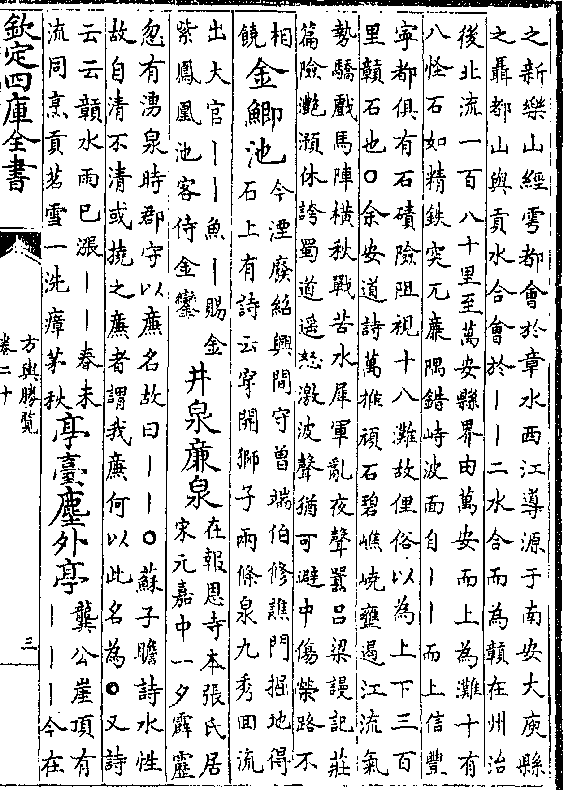 之新樂山經雩都會於章水西江導源于南安大庾縣
之聶都山與貢水合會於丨丨二水合而為贑在州治
後北流一百八十里至萬安縣界由萬安而上為灘十有
八怪石如精鉄突兀亷隅錯峙波面自丨丨而上信豐
寧都俱有石磧險阻視十八灘故俚俗以為上下三百
里贛石也○余安道詩萬推頑石碧嶕嶢壅遏江流氣
勢驕戲馬陣橫秋戰苦水犀軍亂夜聲囂吕梁謾記莊
篇險灧澦休誇蜀道遥愁激波聲猶可避中傷榮路不
相
饒
金鯽池
今湮廢紹興間守曽端伯修譙門掘地得
石上有詩云穿開獅子兩條泉九秀回流
出大官丨丨魚丨賜金
紫鳳凰池客侍金鑾
井泉亷泉
在報恩寺本張氏居
宋元嘉中一夕霹靂
忽有湧泉時郡守以亷名故曰丨丨○蘇子瞻詩水性
故自清不清或撓之亷者謂我亷何以此名為○又詩
云云贑水雨已漲丨丨春未
流同烹貢茗雪一洗瘴茅秋
亭臺塵外亭
龔公崖頂有
丨丨丨今在
欽定四庫全書
方輿勝覽
卷二十
三